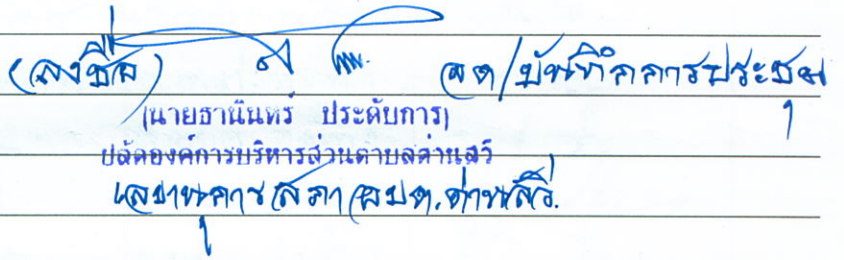 (ลงชื่อ) จด/บันทึกการประชุม
(นายธานินทร์ ประดับการ)
ปลัดองค์การบริหารส่วนตำบลด่านสวี
เลขานุการสภา อบต.ด่านสวี.